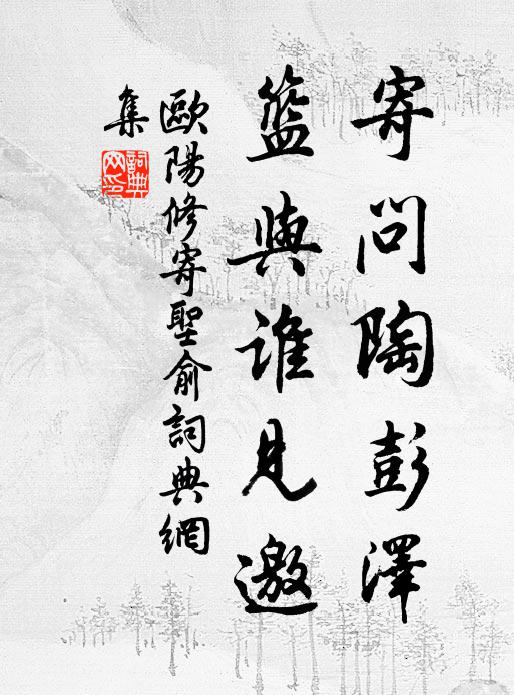 寄問陶彭澤
籃與誰見邀
歐陽修寄聖俞詞典網
集
詞典網印